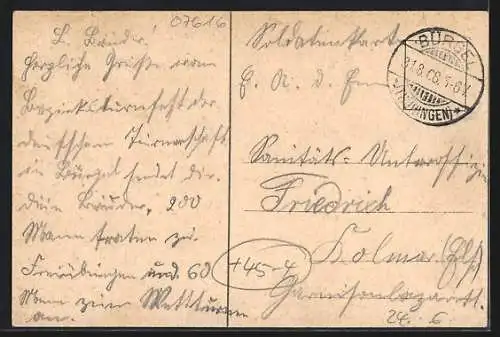 07616
L. Bruder.
Herzliche Grüße vom
Bezirksturnfest der
deutschen Turnerschaft
in Bürgel sendet dir
dein Bruder, 200
Mann traten zu
Freiübungen und 60
Mann zum Wettturnen
an.
Soldatenkarte
BÜRGEL
Sanitäts-Unteroffizier
Friedrich
Kolmar (Els.)
Garnisonlazarett.
+45-4
24. 6